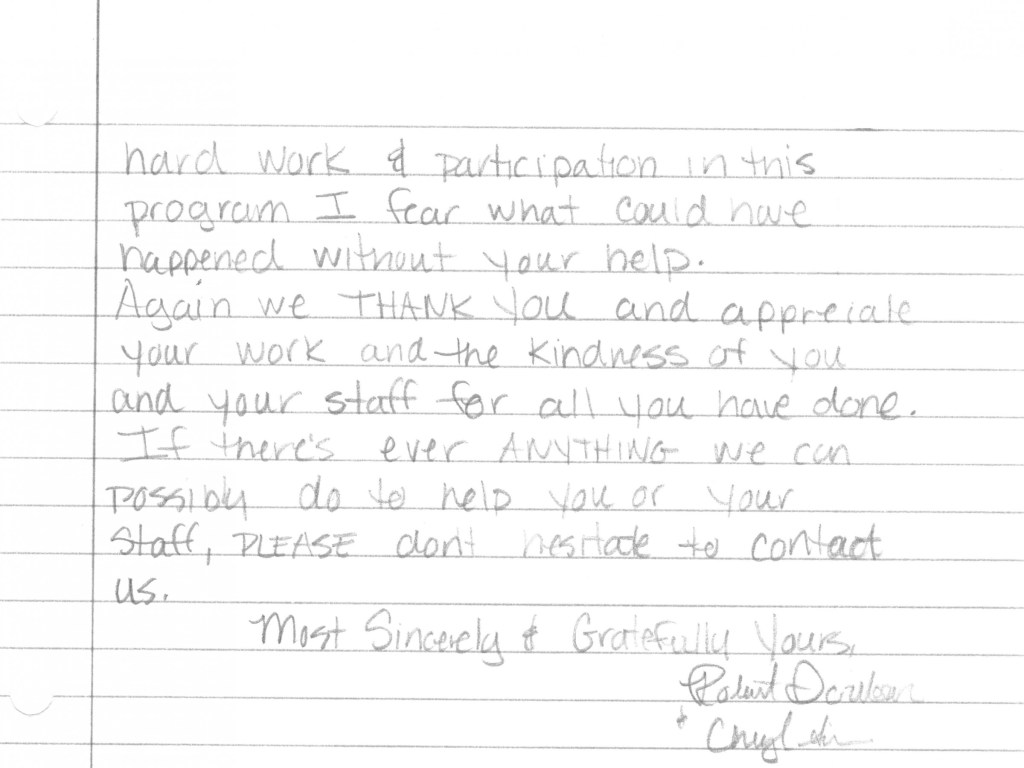 hard work & participation in this
program I fear what could have
happened without your help.
Again we THANK YOU and appreciate
your work and the kindness of you
and your staff for all you have done.
If there's ever ANYTHING we can
possibly do to help you or your
staff, PLEASE dont hesitate to contact
us.
Most Sincerely & Gratefully Yours,
Robert
+ Cheryl